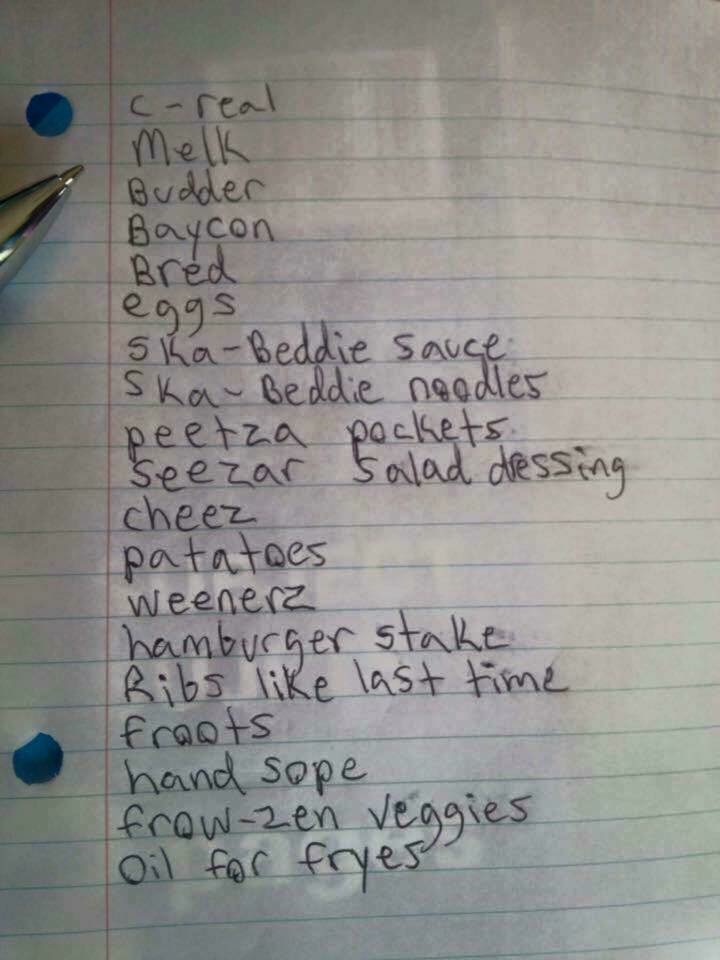 C-real
Melk
Budder
Baycon
Bred
eggs
Ska-Beddie sauce
Ska-Beddie noodles
peetza pockets
Seezar Salad dressing
cheez
patatoes
weenerz
hamburger stake
Ribs like last time
froots
hand sope
frow-zen veggies
Oil for fryes